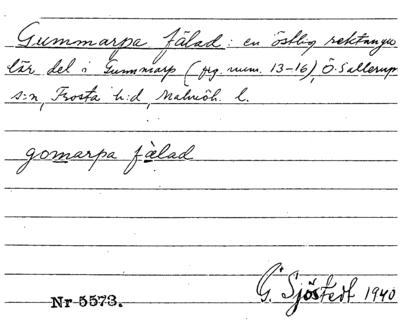 Gummarpa fälad: en östlig rektangu
lär del i Gummarp (jrg. num. 13-16), Ö. Sallerup
s:n, Frosta h:d, Malmöh. l.
gomarpa fälad
G. Sjöstedt 1940
Nr 5573.